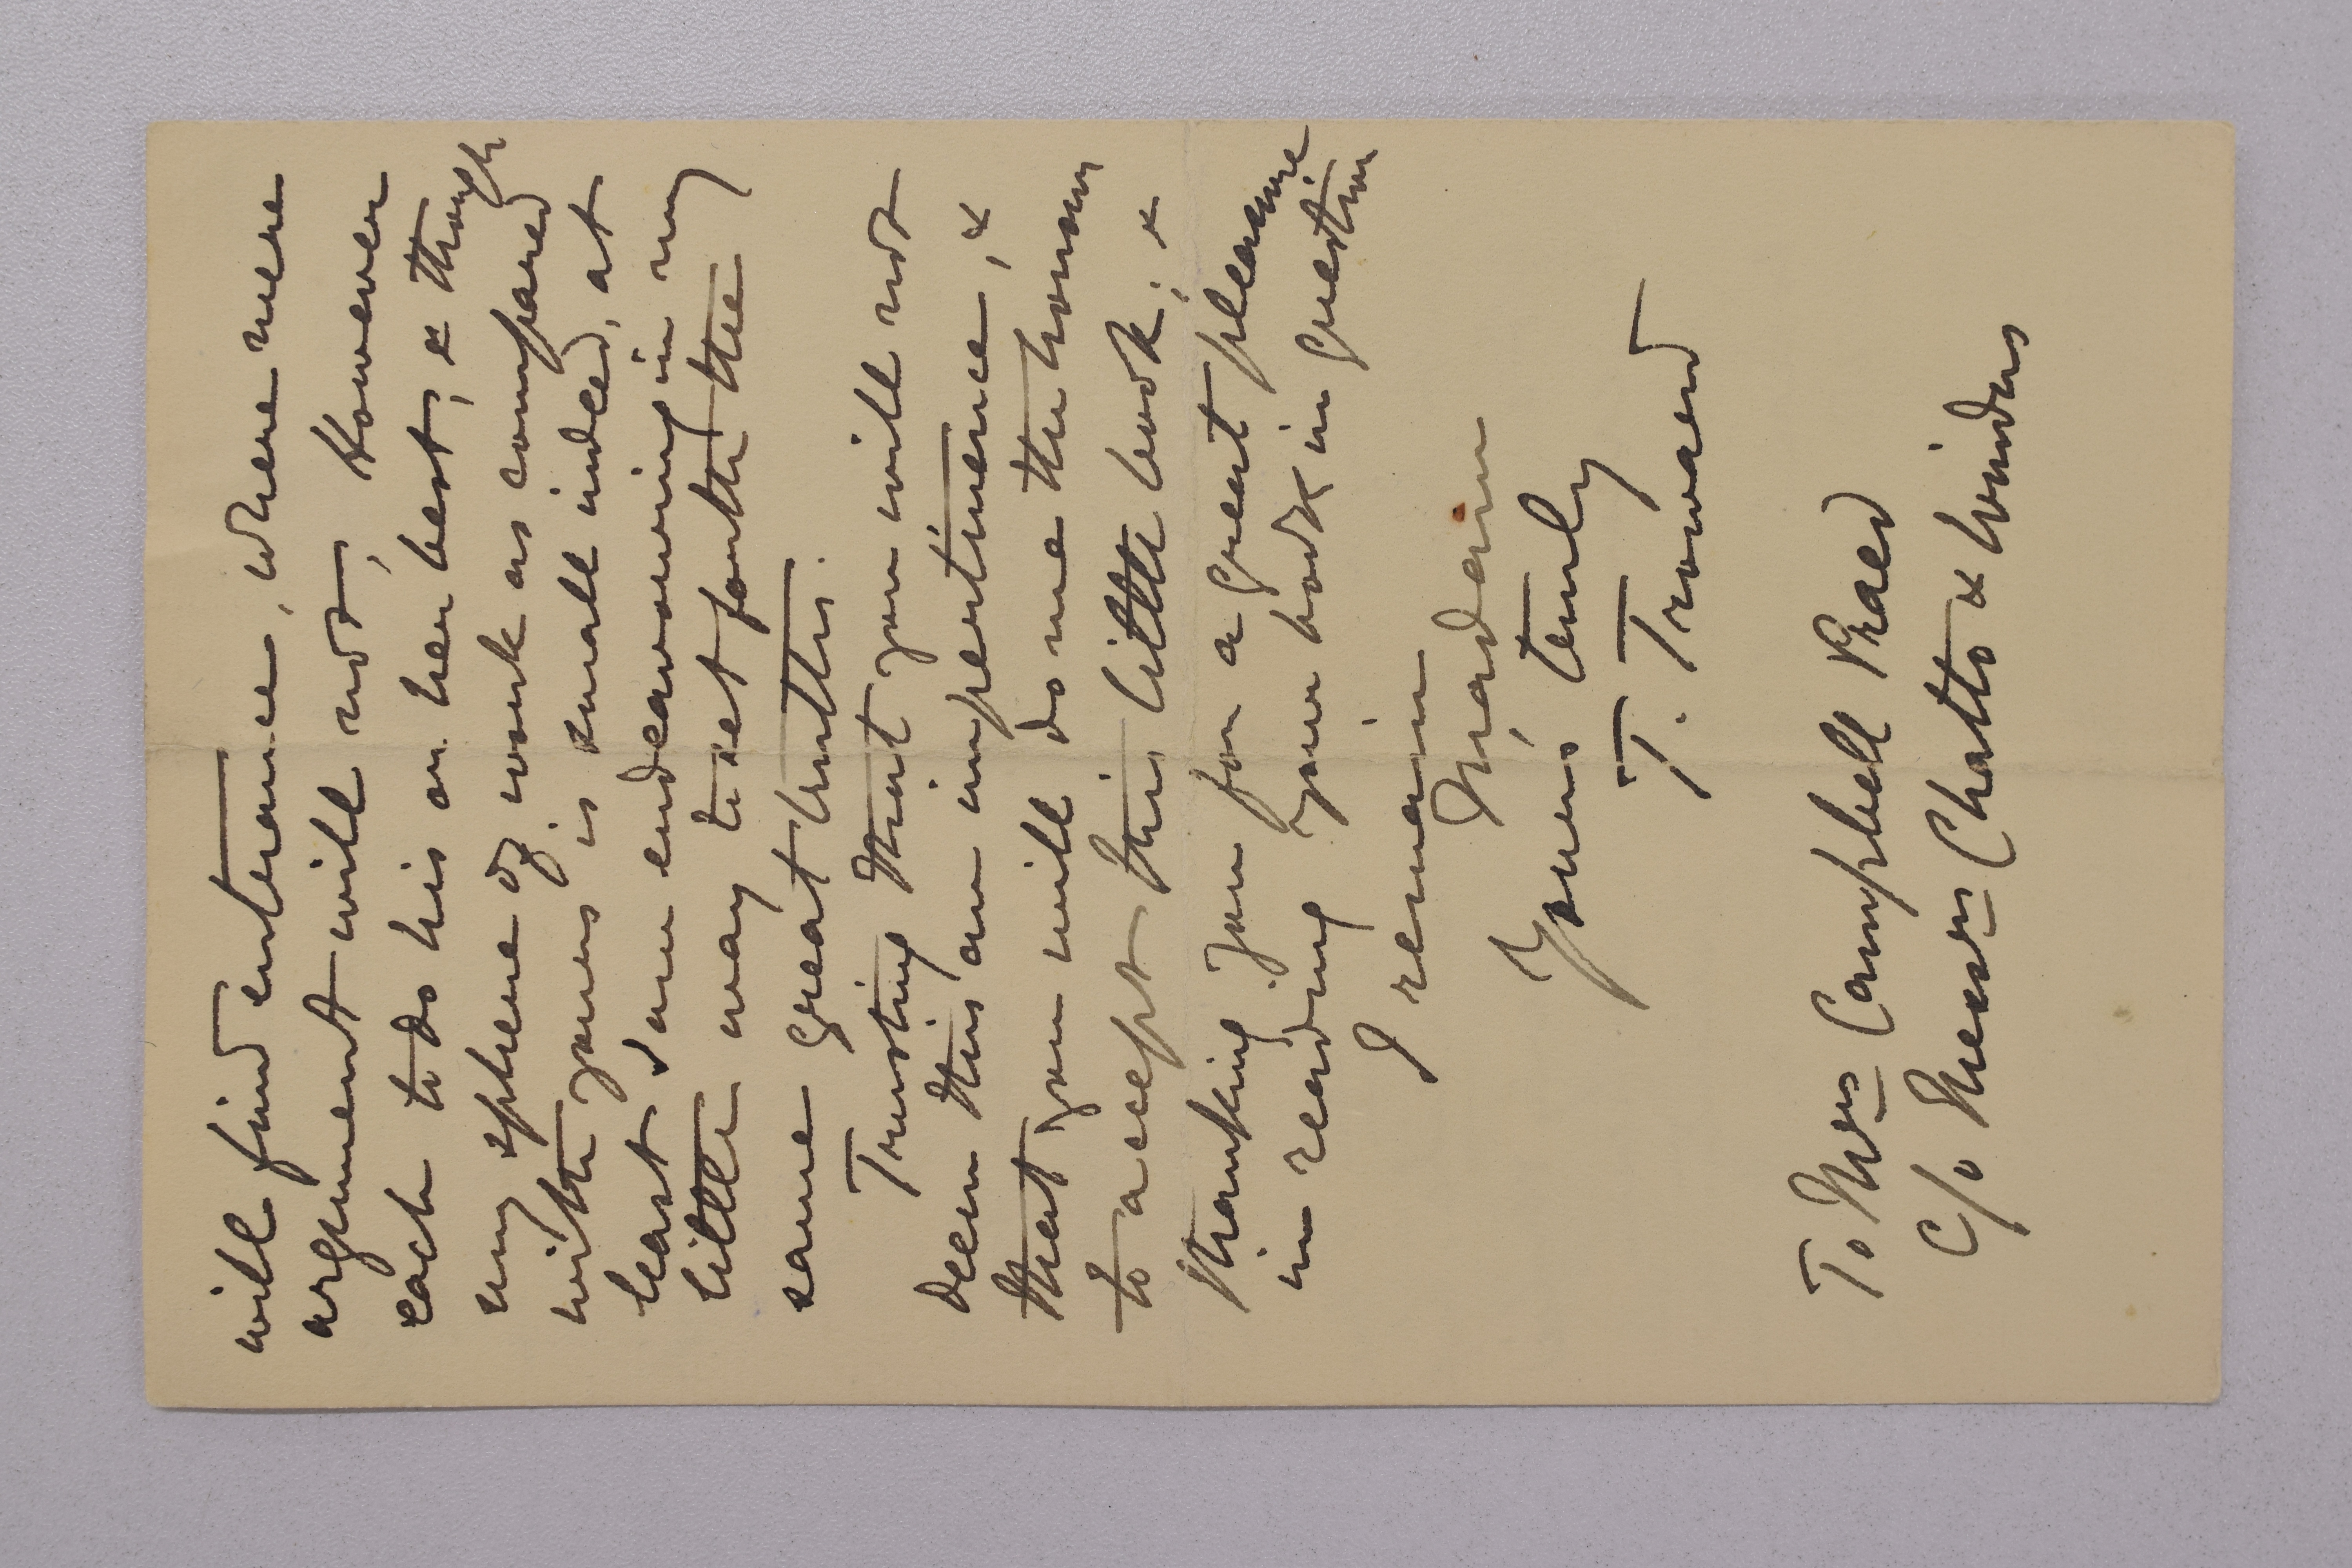 will find entrance, where mere
argument will not, However
each to do his or her best; & though
my sphere of work as compared
with yours is small indeed, at
least I am endeavouring in my
little way to set forth the
same great truths.
Trusting that you will not
deem this an impertinence, &
that you will do me the honour
to accept this little book; &
thanking you for a great pleasure
in reading your book in question
I remain
Madam
Yours truly
T. Troward
To Mrs Campbell Praed
c/o Messrs Chatto & Windus